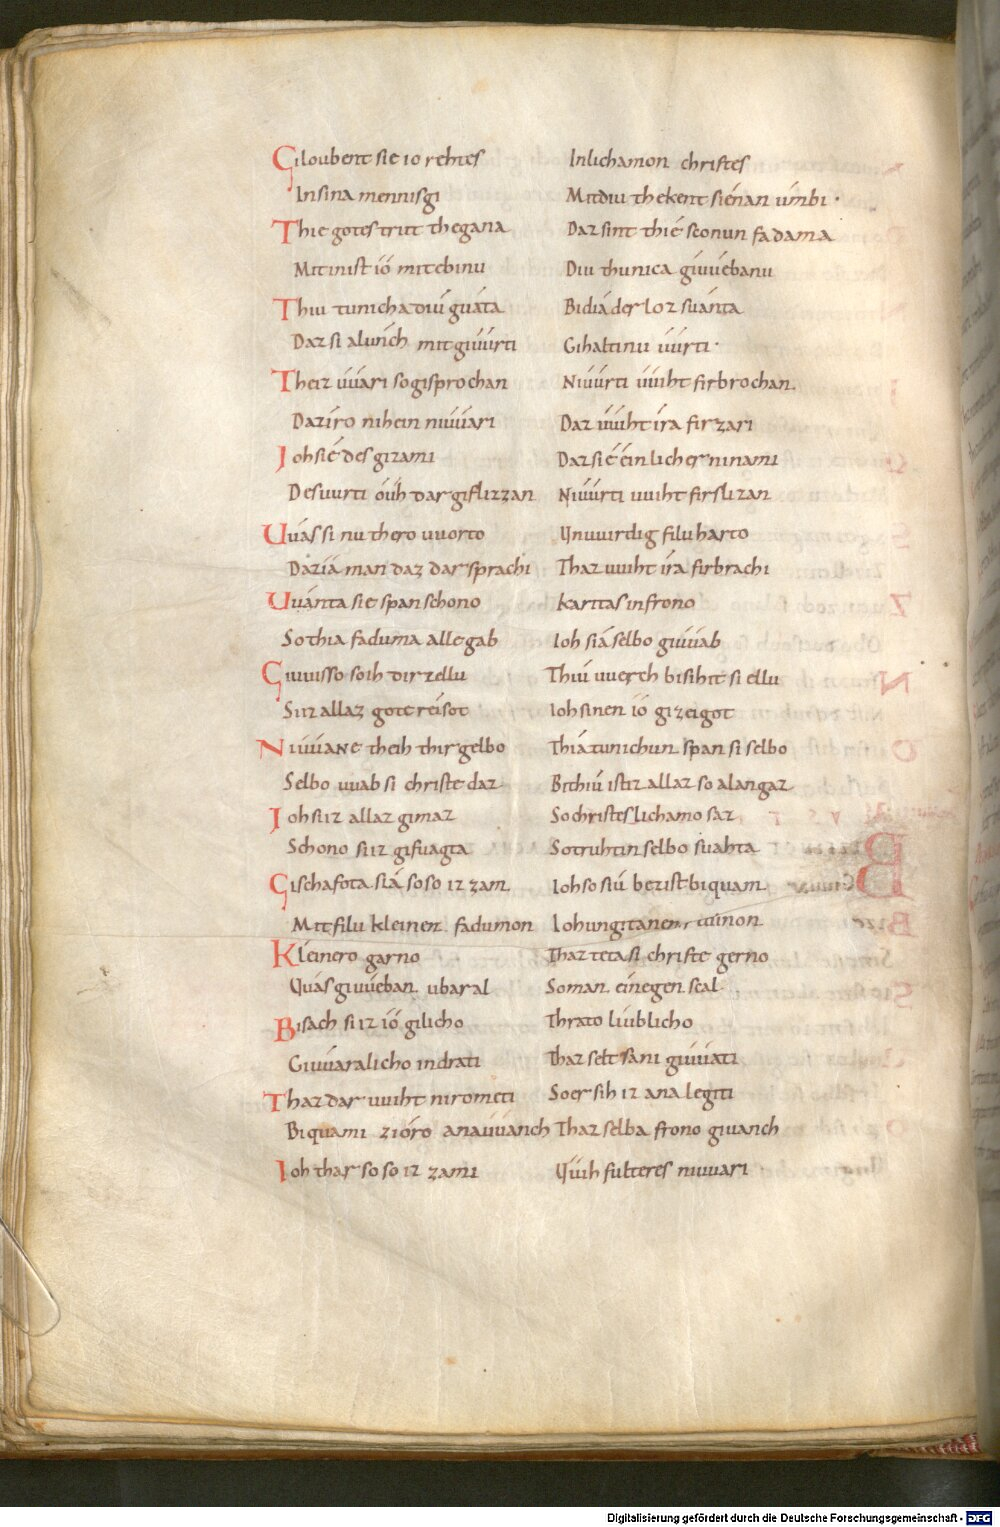 Giloubent sie io rehtes Inlichamon christes
Insina mennisgi Mitdiu thekent siénan úmbi ·
Thie gotes trút thegana Dar sint thié seonun fadama
Mit inist ió mit ebinu Diu thunica giuuébanu
Thiu tunicha diu guáta Bidiá der loz suánta
Daz si alúnich mit giuúrti Gihaltinu uúrti ·
Theiz uuari so gisprochan Niuúrti uuiht firbrochan
Daz íro nihein niuuari Daz uuiht íra firzari
Joh sié des gizami Daz sié éin licher ninami
Des uurti óuh dar giflizzan Niuúrti uuiht firslizan
Uuás si nu thero uuorto Unuuirdig filu harto
Daz iá man daz dar sprachi Thaz uuiht íra firbrachi
Uuánta sie span schono karitas infrono
So thia faduma alle gab Ioh siá selbo giuuab
Giuuisso so ih dir zellu Thiú uuerch bisihit si ellu
Siiz allaz gote réisot Ioh sinen ió gizeigot
Niuuane theih thir gelbo Thiá tunichun span si selbo
Selbo uuab si christe daz Bithiú istiz allaz so alangaz
Joh siiz allaz gimaz So christes lichamo saz
Schono siiz gifuagta So truhtin selbo suahta
Gischafota siá soso iz zam Ioh so siú bezist biquam
Mit filu kleinen fadumon Ioh ungitanen uúinon
Kléinero garno Thaz teta si christe gerno
Uuás giuuéban ubar al So man éinegen scal
Bisach siiz ió gilicho Thrato liublicho
Giuuaralicho indrati Thaz selt sani giuuati
Thaz dar uuiht nirometi So er sih iz ana legiti
Biquami zióro anauuanch Thaz selba frono giuanch
Joh thar soso iz zami Uuih fulteres niuuari
Digitalisierung gefördert durch die Deutsche Forschungsgemeinschaft - DFG